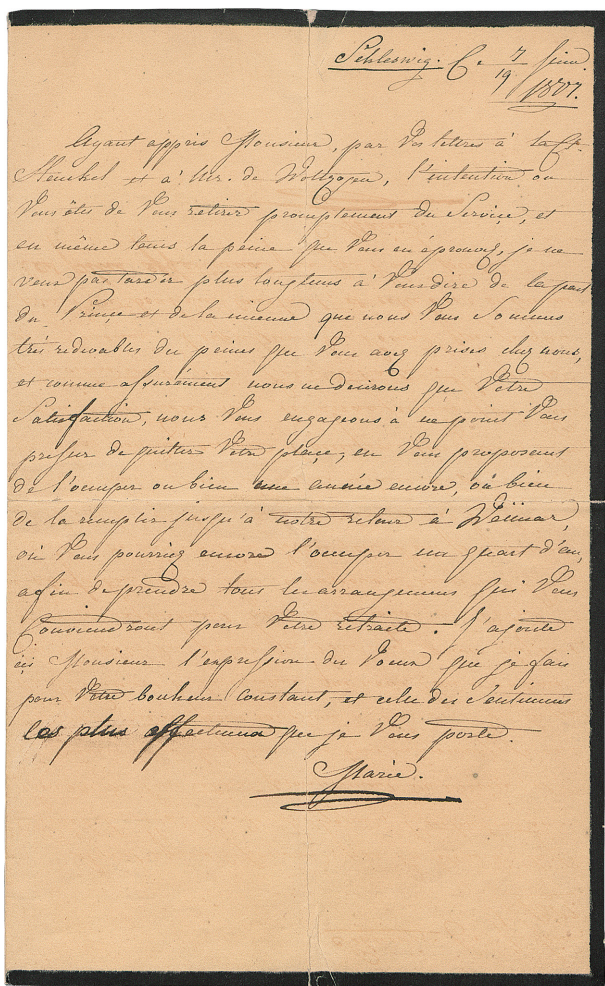 Schleswig. Ce 7/19 Juin.
1807.
Ayant appris Monsieur, par Vos lettres à la Ctsse
Henckel et à Mr. de Wollzogen, l'intention ou
Vous êtes de Vous retirer promptement du Service, et
en même tems la peine que Vous en éprouvez, je ne
veux pas tarder plus longtems à Vous dire de la part
du Prince et de la mienne que nous Vous Sommes
très redevables des peines que Vous avez prises chez nous,
et comme assurément nous ne desirons que Votre
Satisfaction, nous Vous engageons à ne point Vous
presser de quitter Votre place, en Vous proposant
de l'occuper ou bien une année encore, où bien
de la remplir jusqu'à notre retour à Weimar,
où Vous pourriez encore l'occuper un quart d'an,
afin de prendre tous les arrangemens qui Vous
Conviendront pour Votre retraite. J'ajoute
ici Monsieur l'expression des Voeux que je fais
pour Votre bonheur constant, et celle des Sentimens
les plus affectueux que je Vous porte.
Marie.